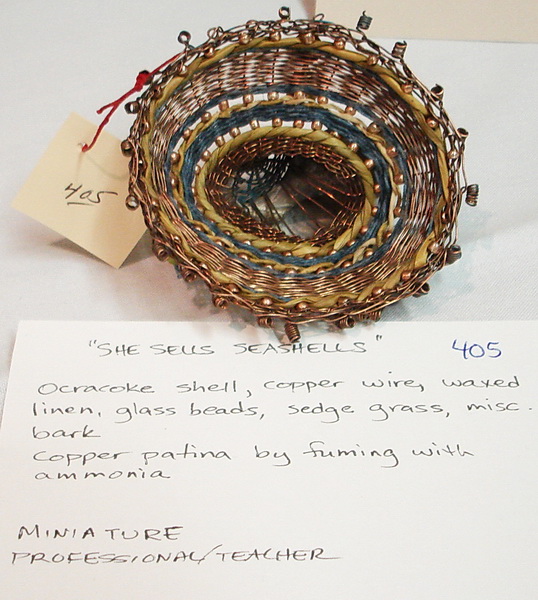 405
"SHE SELLS SEASHELLS" 405
Ocracoke shell, copper wire, waxed
linen, glass beads, sedge grass, misc.
bark
copper patina by fuming with
ammonia
MINIATURE
PROFESSIONAL/TEACHER